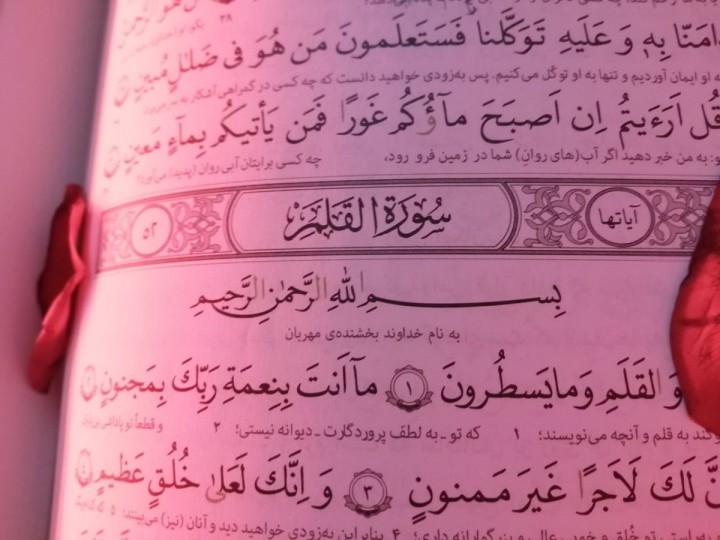 ءامَنّا بِهِ وَ عَلَيهِ تَوَكَّلنا فَسَتَعلَمونَ مَن هُوَ فى ضَلالٍ مُبينٍ
او ایمان آوردیم و تنها به او توکّل می‌کنیم. پس به‌زودی خواهید دانست که چه کسی در گمراهی آشکار به سر می‌برد
قُل اَرَءَيتُم اِن اَصبَحَ مآؤُكُم غَورًا فَمَن يَأتيكُم بِمآءٍ مَعينٍ
به من خبر دهید اگر آب(های روانِ) شما در زمین فرو رود، چه کسی برایتان آبی روان (پدید) می‌آورد؟
آیاتها سُورَةُ القَلَمِ ٥٢
بِسمِ اللهِ الرَّحمٰنِ الرَّحيمِ
به نام خداوند بخشنده‌ی مهربان
وَ القَلَمِ وَ ما يَسطُرونَ ١ ما اَنتَ بِنِعمَةِ رَبِّكَ بِمَجنونٍ ٢
به قلم و آنچه می‌نویسند؛ ۱ که تو ـ به لطف پروردگارت ـ دیوانه نیستی؛ ۲ و قطعاً تو پاداشی
لَكَ لَاَجرًا غَيرَ مَمنونٍ ٣ وَ اِنَّكَ لَعَلىٰ خُلُقٍ عَظيمٍ ٤
تو خُلق و خویی عالی و بزرگوارانه داری؛ ۴ بنابراین به‌زودی خواهید دید و آنان (نیز) می‌بینند؛ ۵